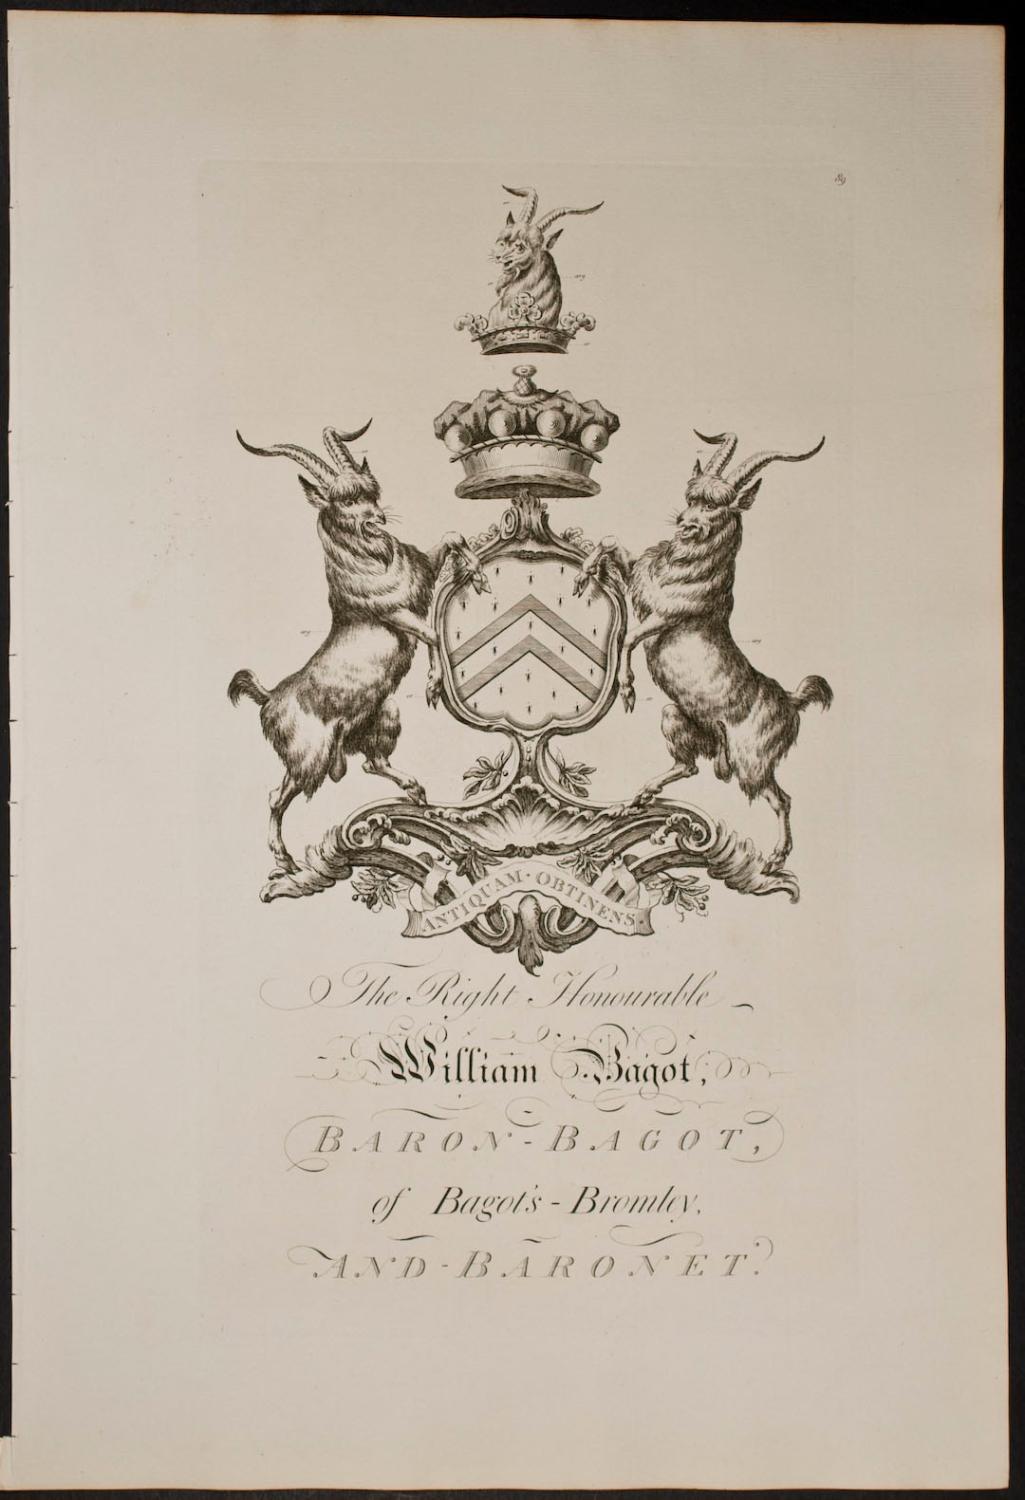 89
ANTIQUAM · OBTINENS ·
The Right Honourable
William Bagot,
BARON-BAGOT,
of Bagot's-Bromley,
AND-BARONET.